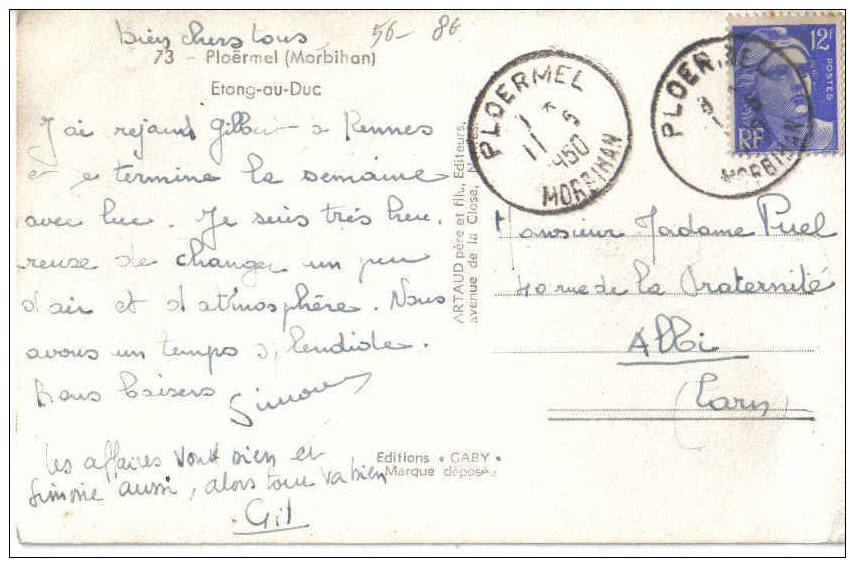 Bien chers tous
56- 86
73 - Ploërmel (Morbihan)
Etang-au-Duc
J'ai rejoint Gilbert à Rennes
et je termine la semaine
avec lui. Je suis très heu.
reuse de changer un peu
d'air et d'atmosphère. Nous
avons un temps splendide.
Bons baisers
Simone
Les affaires vont bien et
Simone aussi, alors tout va bien
Gil
ARTAUD père et fils, Editeurs,
avenue de la Close,
Editions « GABY »
Marque déposée
PLOERMEL
11 - 5
1950
MORBIHAN
PLOERMEL
MORBIHAN
12F
POSTES
RF
Monsieur Madame Puel
40 rue de la Fraternité
Albi
(Tarn)